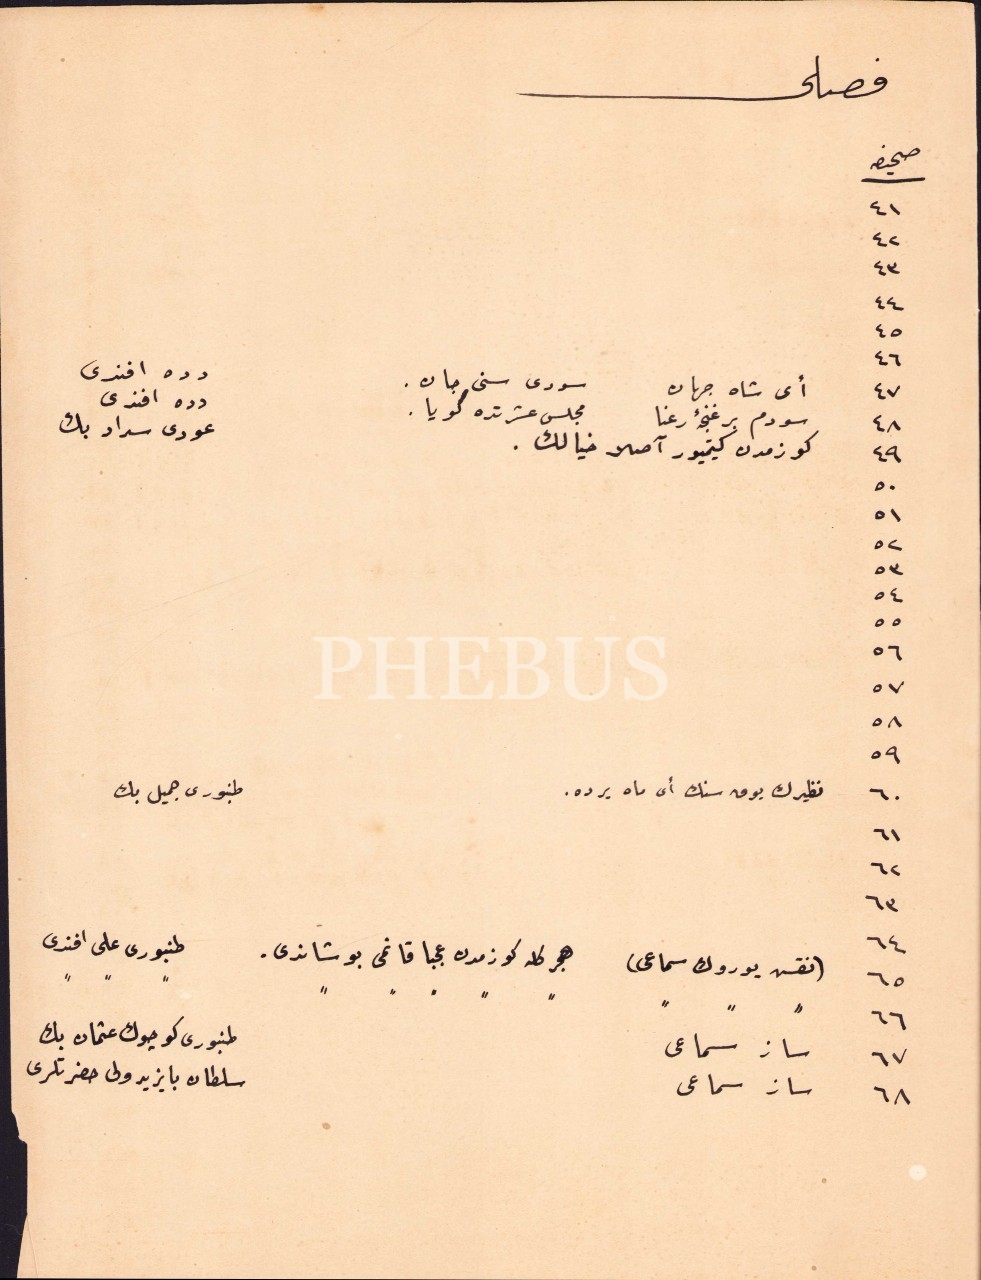 فصلى
صحيفه
٤١
٤٢
٤٣
٤٤
٤٥
٤٦
٤٧ أى شاه جهان سودى سنى جان . دده افندى
٤٨ سودم بر غنچۀ رعنا مجلس عشرتده گويا . دده افندى
٤٩ كوزمدن كيتميور آصلا خيالك . عودى سداد بك
٥٠
٥١
٥٢
٥٣
٥٤
٥٥
٥٦
٥٧
٥٨
٥٩
PHEBUS
٦٠ نظيرك يوق سنك أى ماه يرده . طنبورى جميل بك
٦١
٦٢
٦٣
٦٤ (نقش يوروك سماعى) هجرڭله كوزمدن عجبا قانمى بوشاندى . طنبورى على افندى
٦٥ " " " " " " " " " " "
٦٦
٦٧ ساز سماعى طنبورى كوچوك عثمان بك
٦٨ ساز سماعى سلطان بايزيد ولى حضرتلرى